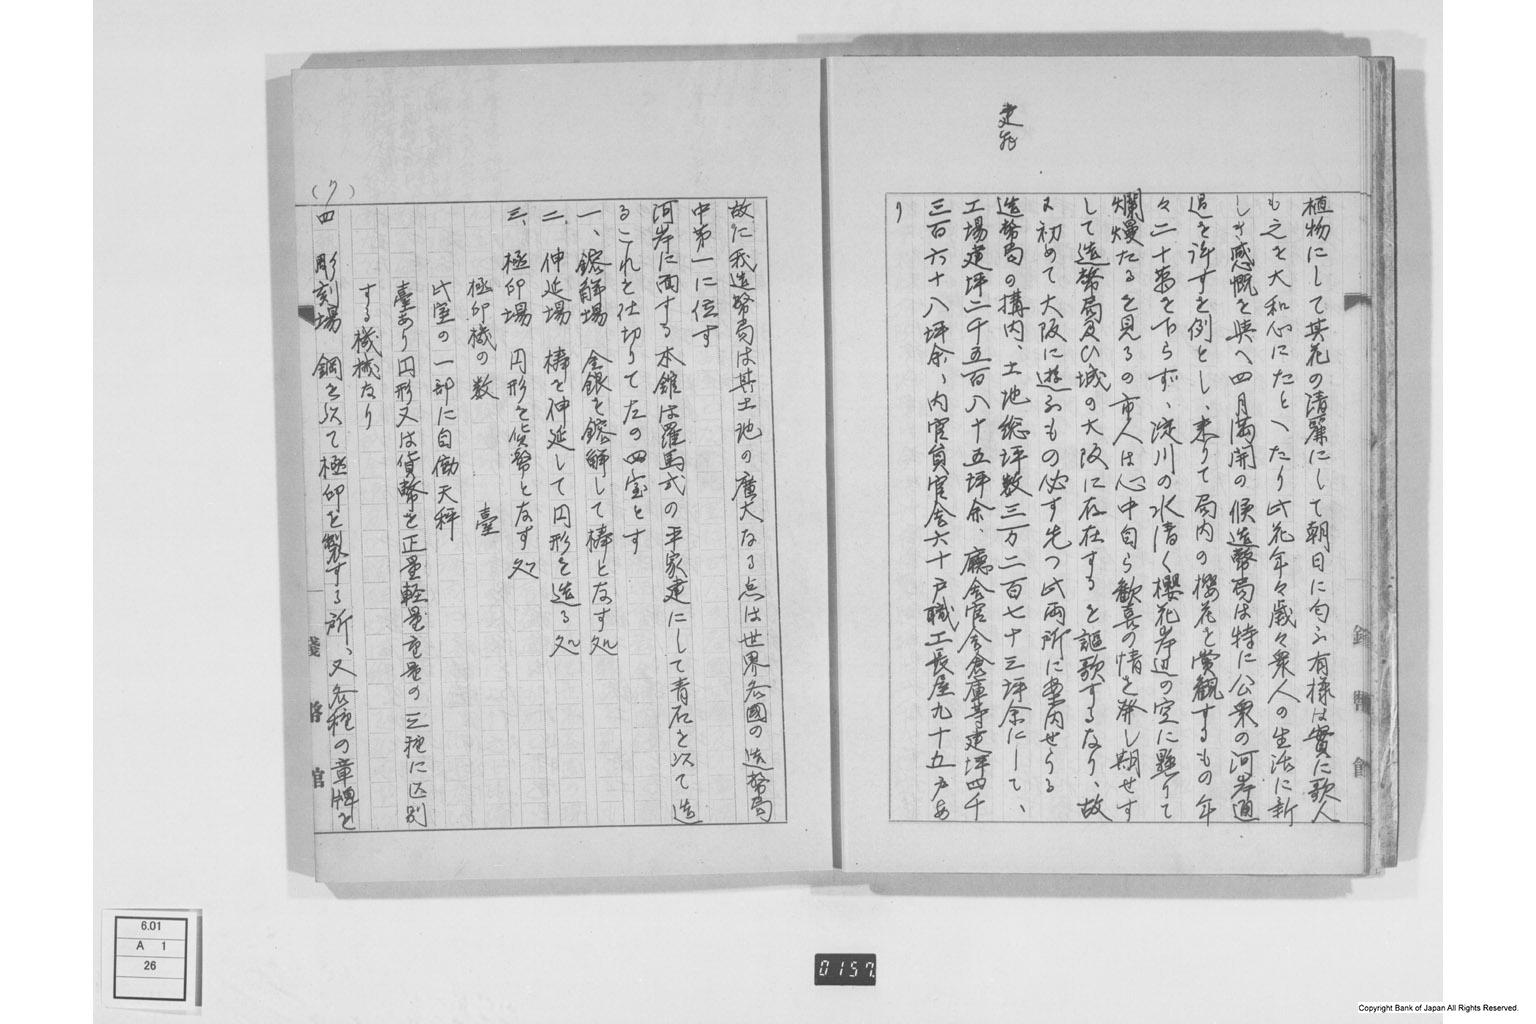 建坪
植物にして其花の清麗にして朝日に匂ふ有様は實に歌人
も之を大和心にたとへたり此花年々歳々衆人の生活に新
しき感慨を與へ四月満開の候造幣局は特に公衆の河岸通
過を許すを例とし、来りて局内の櫻花を賞観するもの年
々二十萬を下らず、淀川の水清く櫻花岸辺の空に懸りて
爛熳たるを見るの市人は心中自ら歓喜の情を発し期せす
して造幣局及ひ城の大阪に存在するを謳歌するなり、故
に初めて大阪に遊ふもの必す先つ此両所に案内せらる
造幣局の構内、土地総坪数三万二百七十三坪余にして、
工場建坪二千五百八十五坪余、廳舎官舎倉庫等建坪四千
三百六十八坪余、内官員官舎六十戸職工長屋九十五戸あ
り
故に我造幣局は其土地の廣大なる点は世界各國の造幣局
中第一に位す
河岸に面する本館は羅馬式の平家建にして青石を以て造
るこれを仕切りて左の四室とす
一、鎔解場 金銀を鎔解して棒となす処
二、伸延場 棒を伸延して円形を造る処
三、極印場 円形を貨幣となす処
極印機の数 臺
此室の一部に自働天秤
臺あり円形又は貨幣を正量軽量重量の三種に区別
する機械なり
四 彫刻場 鋼を以て極印を製する所、又各種の章牌を
(7)
6.01
A 1
26
0157
Copyright Bank of Japan All Rights Reserved.